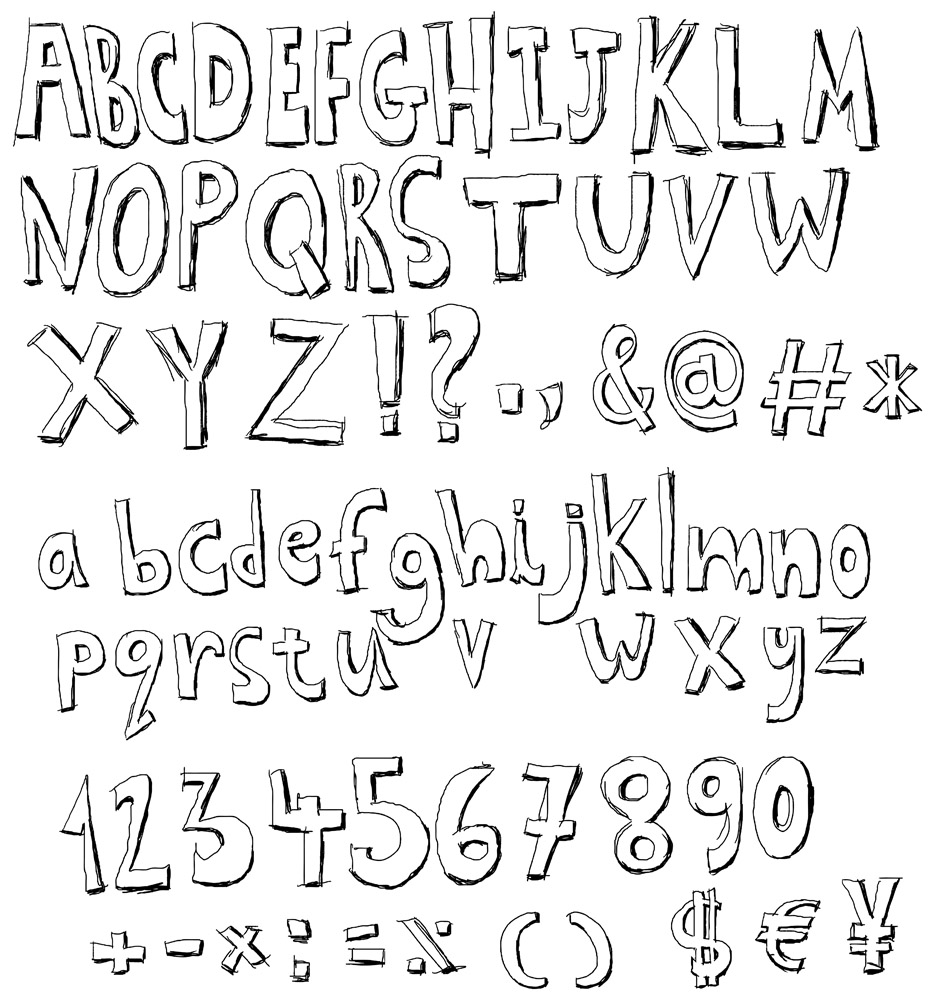 ABCDEFGHIJKLM
NOPQRSTUVW
XYZ!?.,&@#*
abcdefghijklmno
pqrstuvwxyz
1234567890
+-x:=%()$€¥